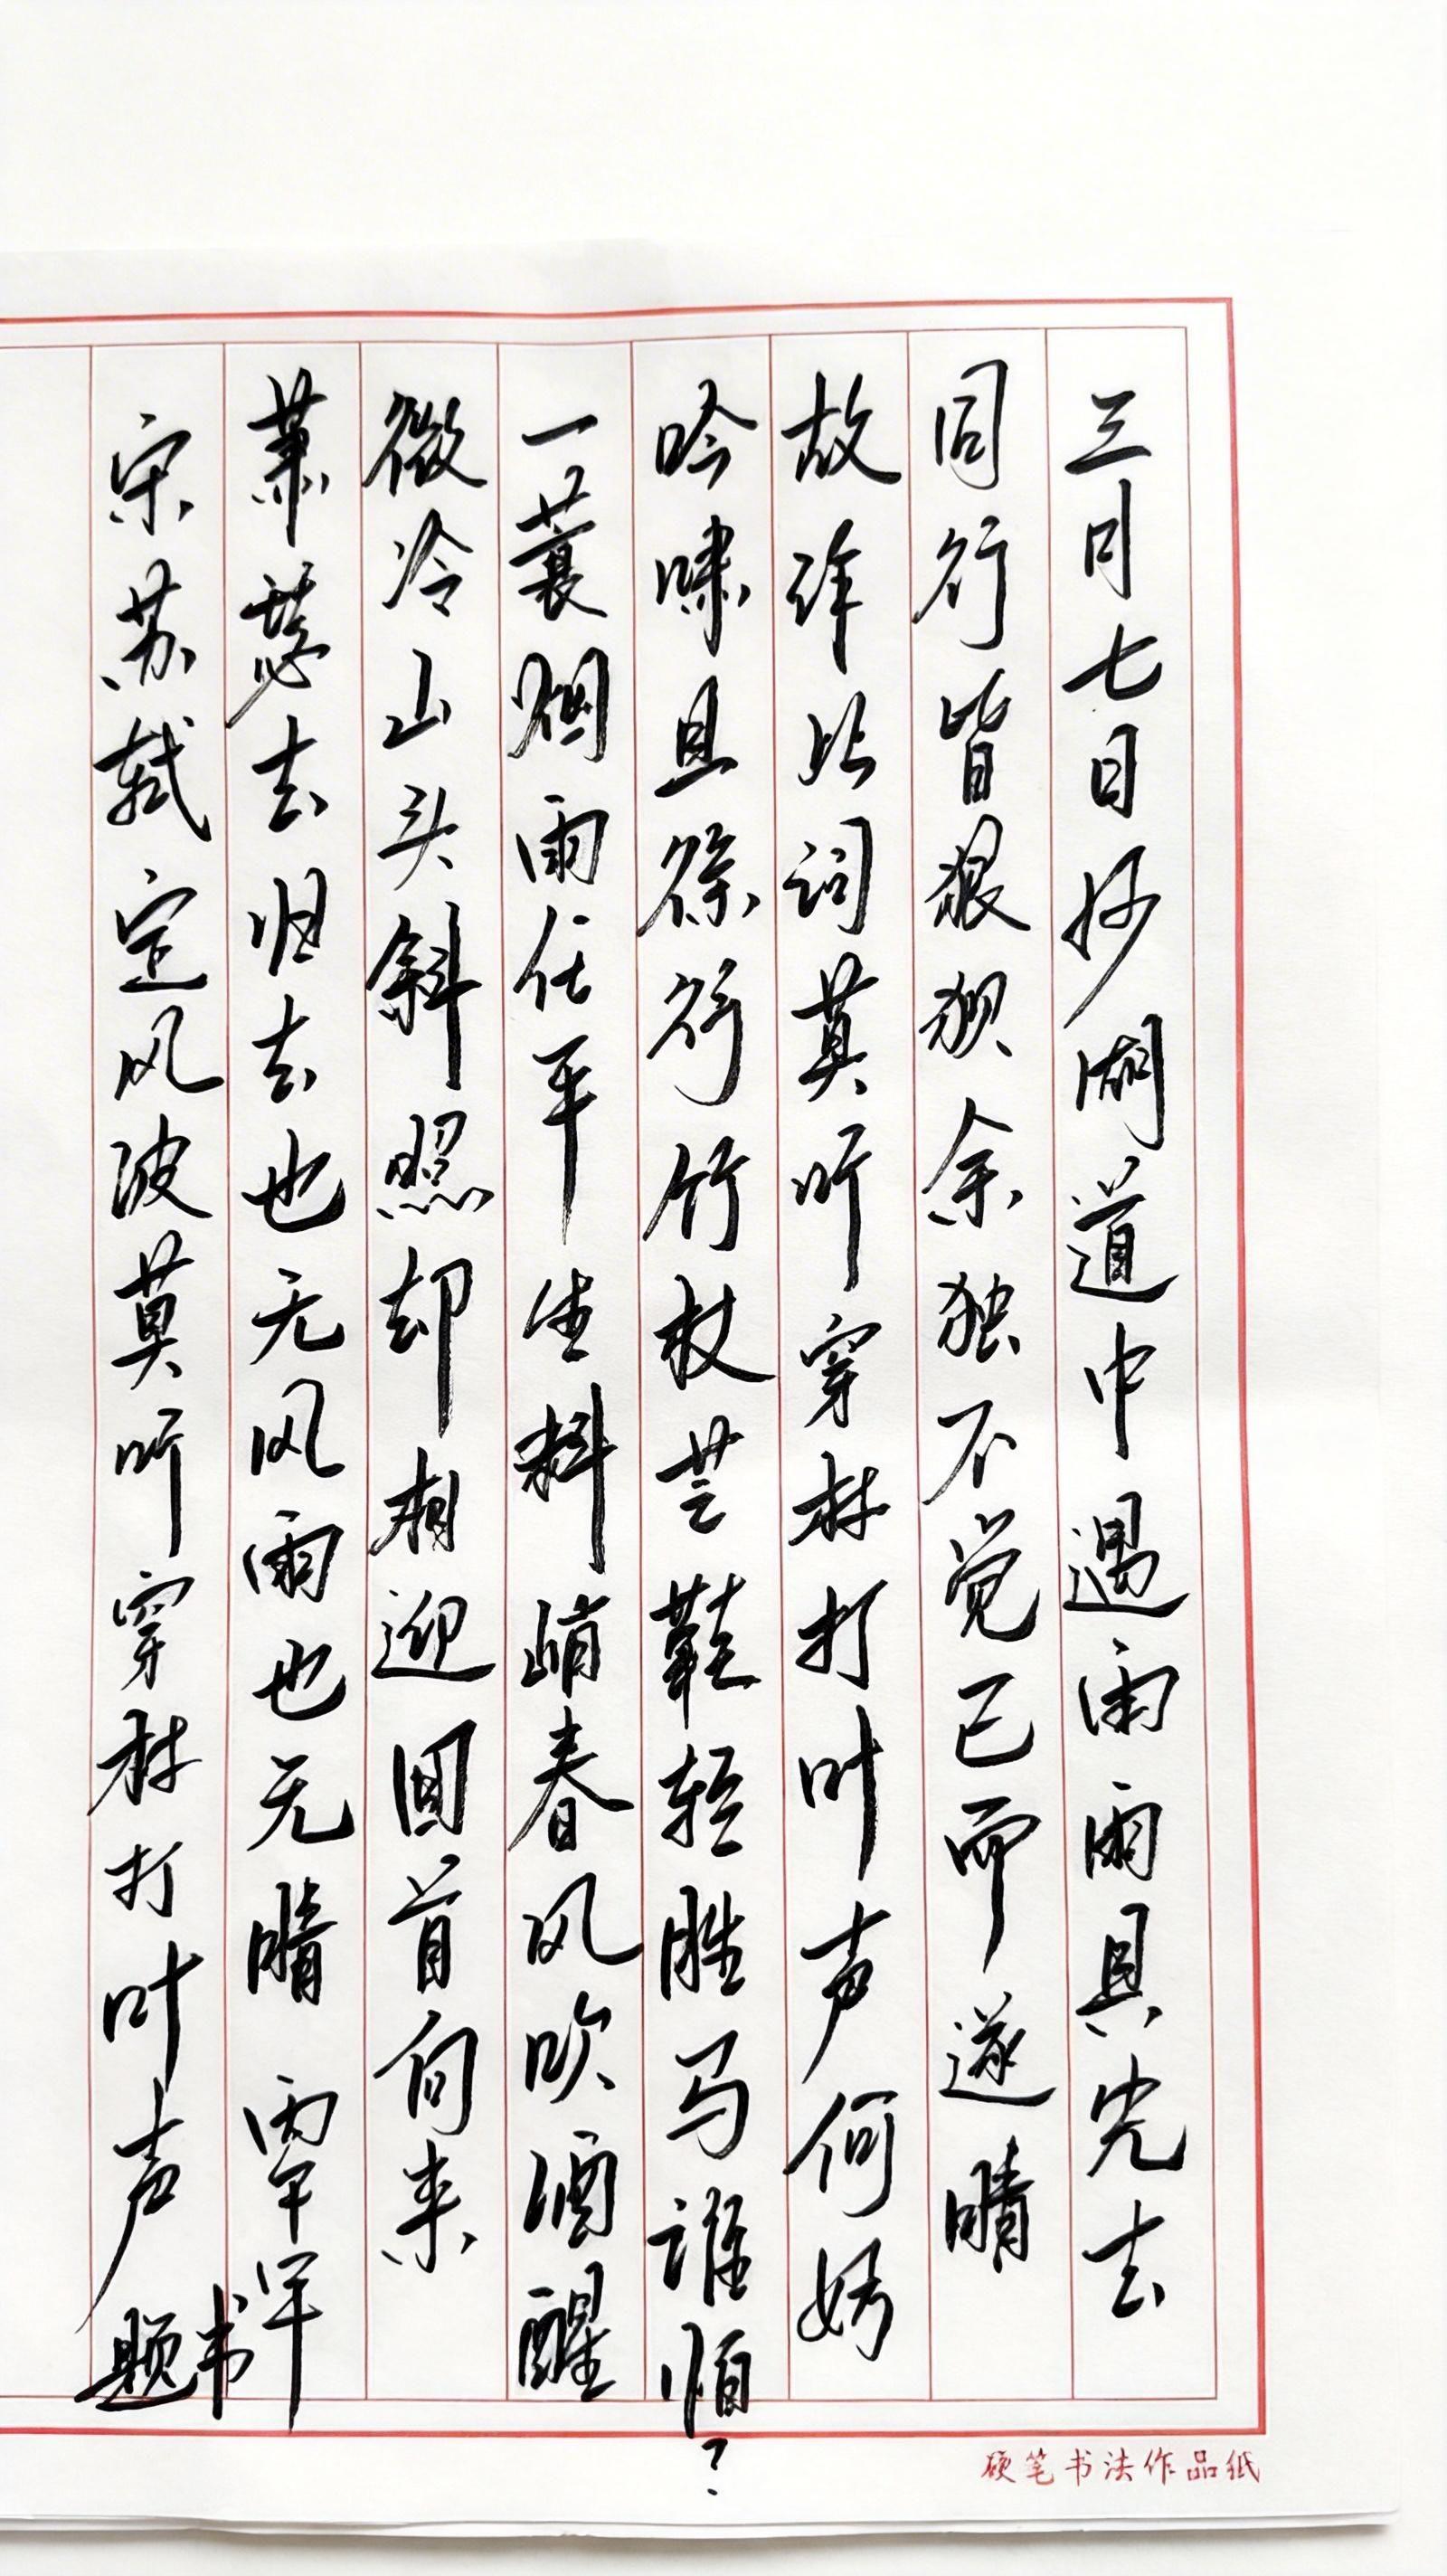 三月七日沙湖道中遇雨雨具先去
同行皆狼狈余独不觉已而遂晴
故作此词莫听穿林打叶声何妨
吟啸且徐行竹杖芒鞋轻胜马谁怕？
一蓑烟雨任平生料峭春风吹酒醒
微冷山头斜照却相迎回首向来
萧瑟去归去也无风雨也无晴
宋苏轼定风波莫听穿林打叶声
题书
硬笔书法作品纸